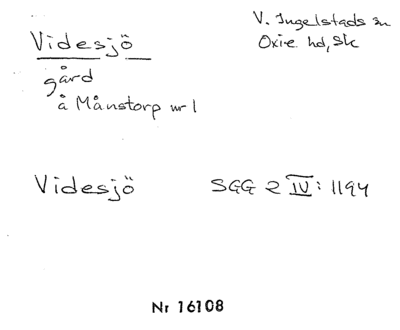 Videsjö
V. Ingelstads sn
Oxie hd, Sk
gård
å Månstorp nr 1
Videsjö
SGG 2 IV: 1194
Nr 16108